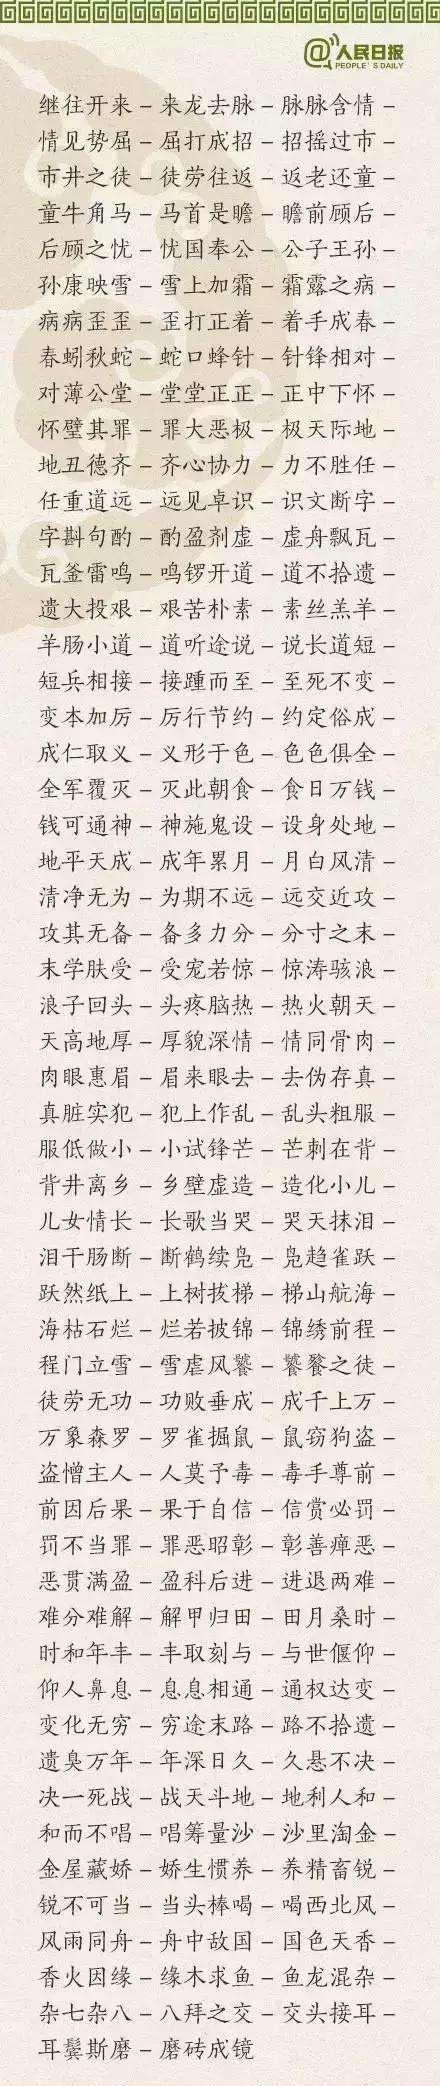 @人民日报
PEOPLE'S DAILY
继往开来–来龙去脉–脉脉含情–
情见势屈–屈打成招–招摇过市–
市井之徒–徒劳往返–返老还童–
童牛角马–马首是瞻–瞻前顾后–
后顾之忧–忧国奉公–公子王孙–
孙康映雪–雪上加霜–霜露之病–
病病歪歪–歪打正着–着手成春–
春蚓秋蛇–蛇口蜂针–针锋相对–
对薄公堂–堂堂正正–正中下怀–
怀璧其罪–罪大恶极–极天际地–
地丑德齐–齐心协力–力不胜任–
任重道远–远见卓识–识文断字–
字斟句酌–酌盈剂虚–虚舟飘瓦–
瓦釜雷鸣–鸣锣开道–道不拾遗–
遗大投艰–艰苦朴素–素丝羔羊–
羊肠小道–道听途说–说长道短–
短兵相接–接踵而至–至死不变–
变本加厉–厉行节约–约定俗成–
成仁取义–义形于色–色色俱全–
全军覆灭–灭此朝食–食日万钱–
钱可通神–神施鬼设–设身处地–
地平天成–成年累月–月白风清–
清净无为–为期不远–远交近攻–
攻其无备–备多力分–分寸之末–
末学肤受–受宠若惊–惊涛骇浪–
浪子回头–头疼脑热–热火朝天–
天高地厚–厚貌深情–情同骨肉–
肉眼惠眉–眉来眼去–去伪存真–
真脏实犯–犯上作乱–乱头粗服–
服低做小–小试锋芒–芒刺在背–
背井离乡–乡壁虚造–造化小儿–
儿女情长–长歌当哭–哭天抹泪–
泪干肠断–断鹤续凫–凫趋雀跃–
跃然纸上–上树拔梯–梯山航海–
海枯石烂–烂若披锦–锦绣前程–
程门立雪–雪虐风饕–饕餮之徒–
徒劳无功–功败垂成–成千上万–
万象森罗–罗雀掘鼠–鼠窃狗盗–
盗憎主人–人莫予毒–毒手尊前–
前因后果–果于自信–信赏必罚–
罚不当罪–罪恶昭彰–彰善瘅恶–
恶贯满盈–盈科后进–进退两难–
难分难解–解甲归田–田月桑时–
时和年丰–丰取刻与–与世偃仰–
仰人鼻息–息息相通–通权达变–
变化无穷–穷途末路–路不拾遗–
遗臭万年–年深日久–久悬不决–
决一死战–战天斗地–地利人和–
和而不唱–唱筹量沙–沙里淘金–
金屋藏娇–娇生惯养–养精畜锐–
锐不可当–当头棒喝–喝西北风–
风雨同舟–舟中敌国–国色天香–
香火因缘–缘木求鱼–鱼龙混杂–
杂七杂八–八拜之交–交头接耳–
耳鬓斯磨–磨砖成镜